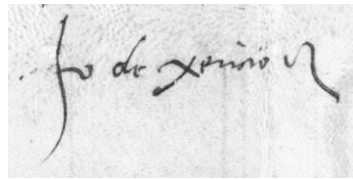 fo de xerico